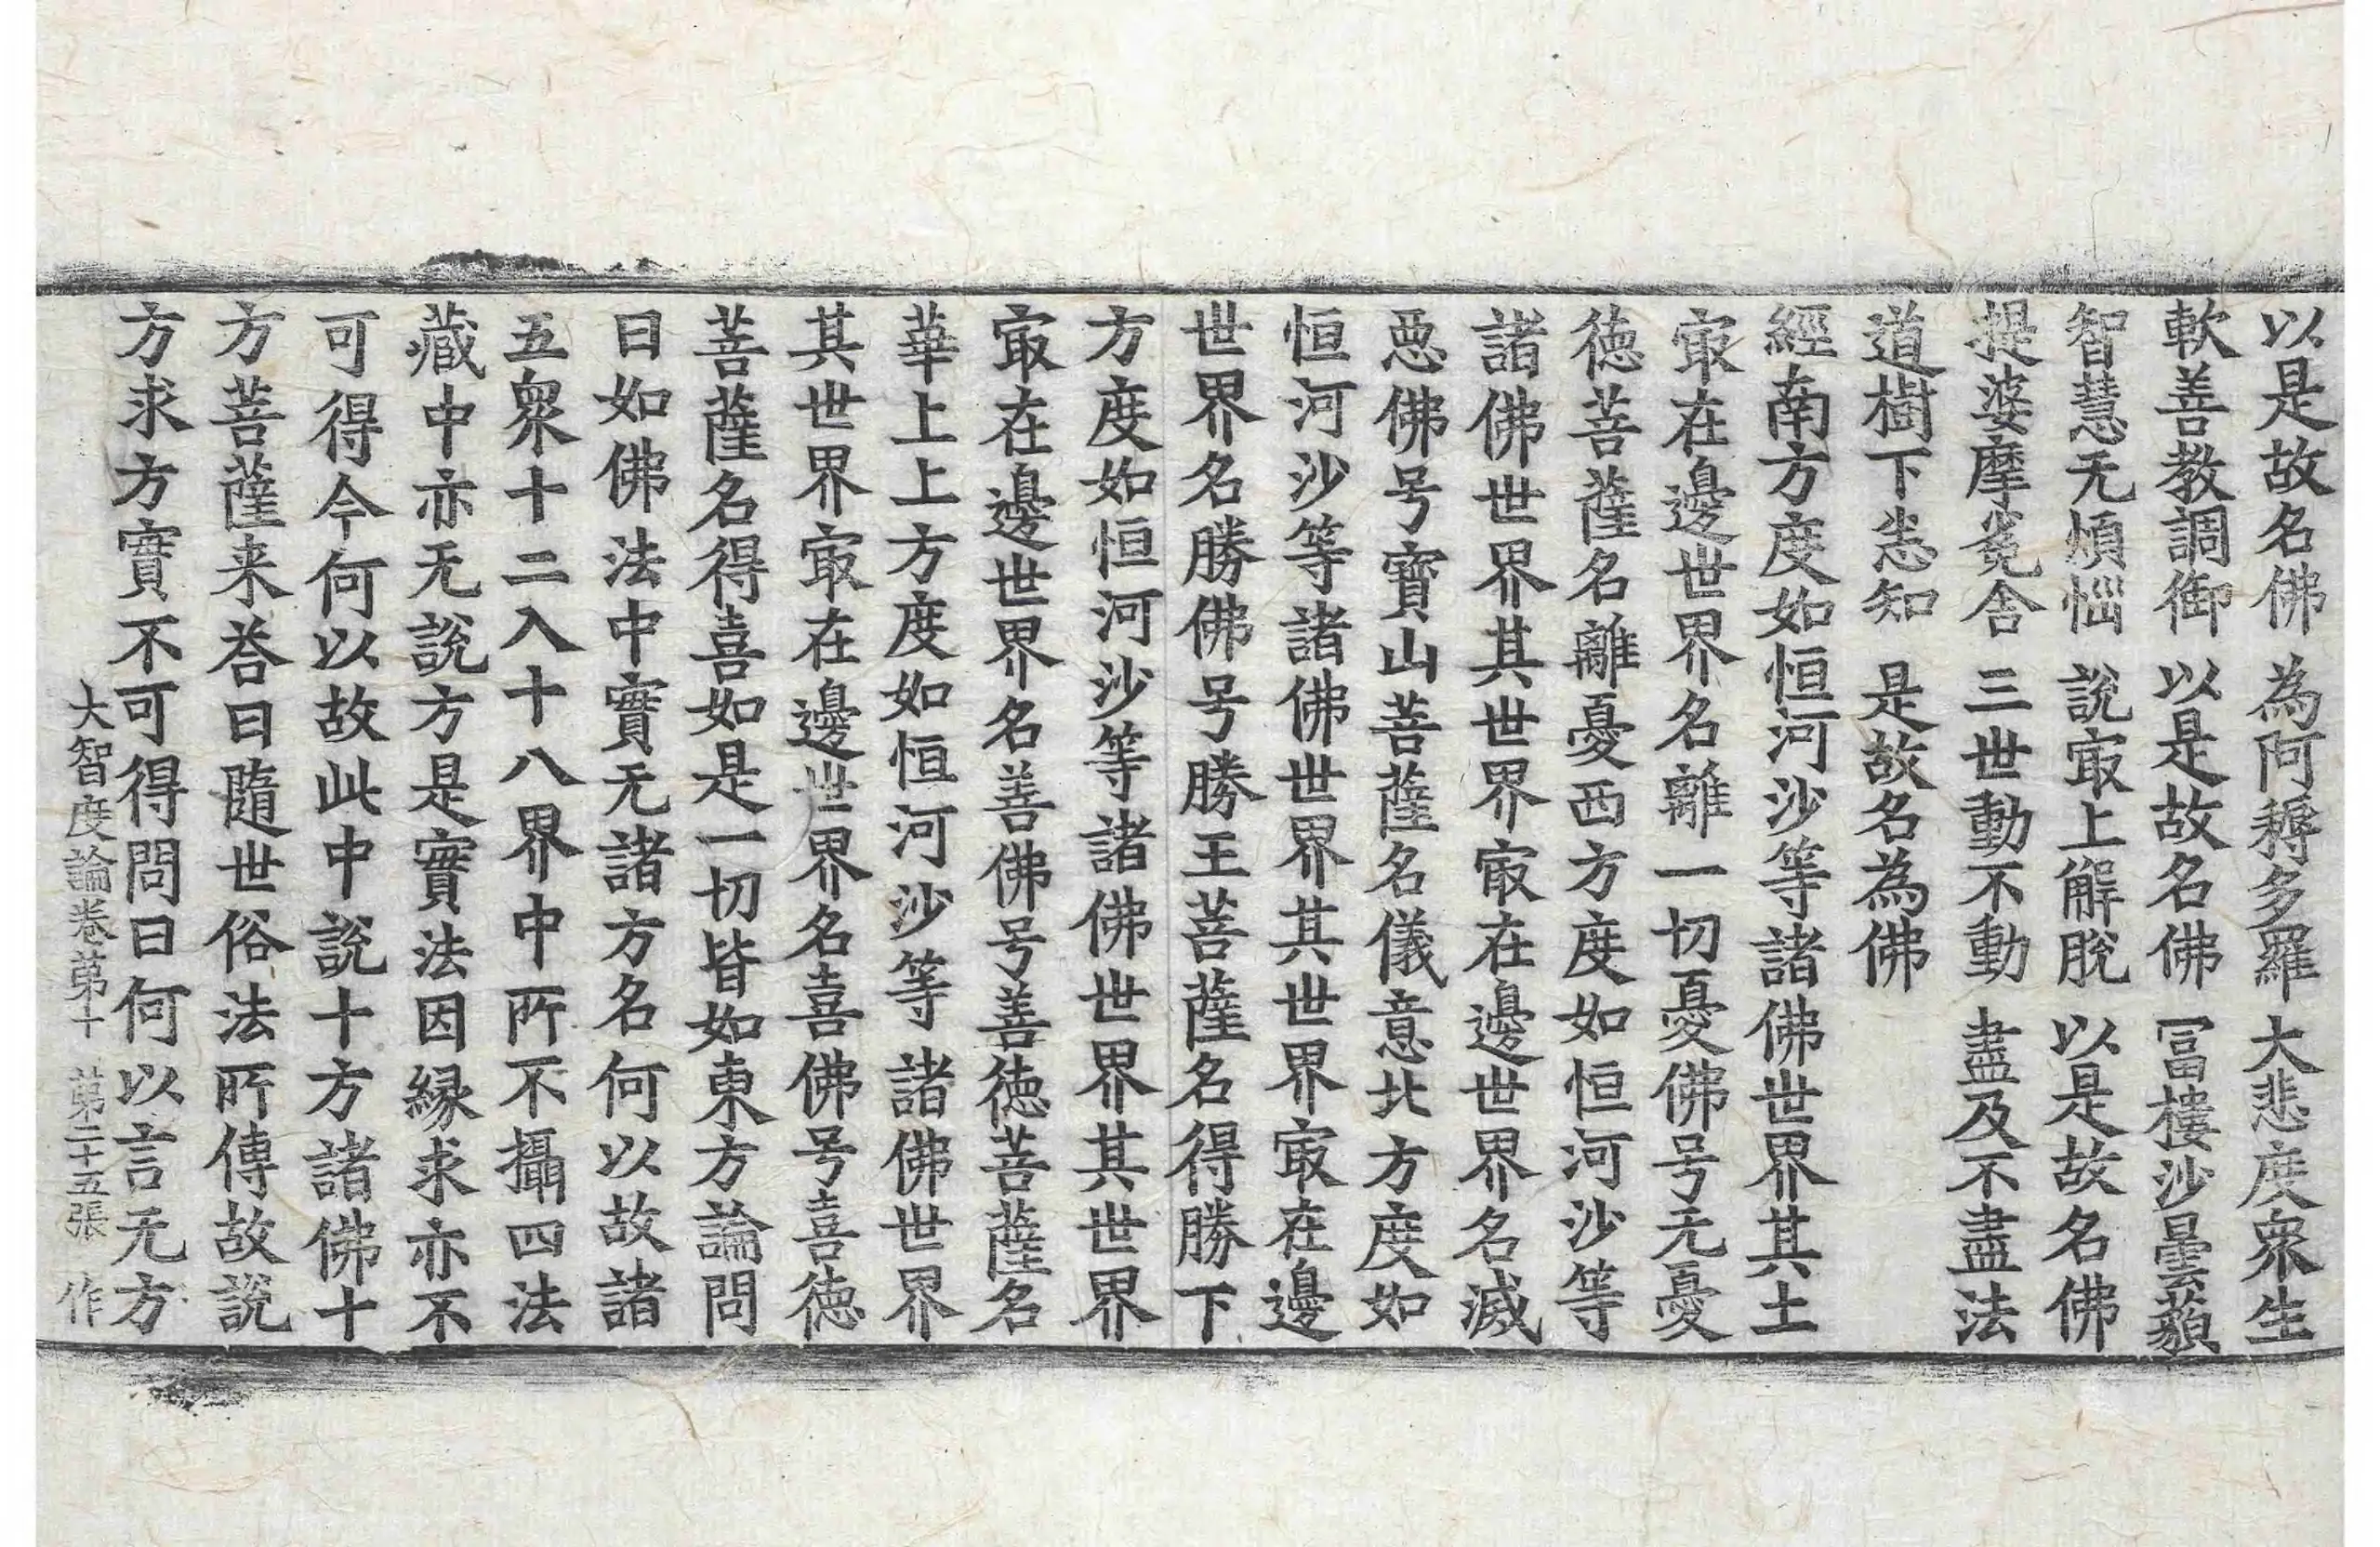 以是故名佛　為阿耨多羅　大悲度衆生
軟善教調御　以是故名佛　冨樓沙曇藐
智慧无煩惱　說㝡上解脫　以是故名佛
提婆摩㝹舍　三世動不動　盡及不盡法
道樹下悉知　是故名為佛
經南方度如恒河沙等諸佛世界其土
㝡在邊世界名離一切憂佛号无憂
徳菩薩名離憂西方度如恒河沙等
諸佛世界其世界㝡在邊世界名滅
惡佛号寶山菩薩名儀意北方度如
恒河沙等諸佛世界其世界㝡在邊
世界名勝佛号勝王菩薩名得勝下
方度如恒河沙等諸佛世界其世界
㝡在邊世界名善佛号善徳菩薩名
華上上方度如恒河沙等諸佛世界
其世界㝡在邊世界名喜佛号喜徳
菩薩名得喜如是一切皆如東方論問
曰如佛法中實无諸方名何以故諸
五衆十二入十八界中所不攝四法
藏中亦无說方是實法因縁求亦不
可得今何以故此中說十方諸佛十
方菩薩来荅曰隨世俗法所傳故說
方求方實不可得問曰何以言无方
大智度論卷第十　第二十五張　作